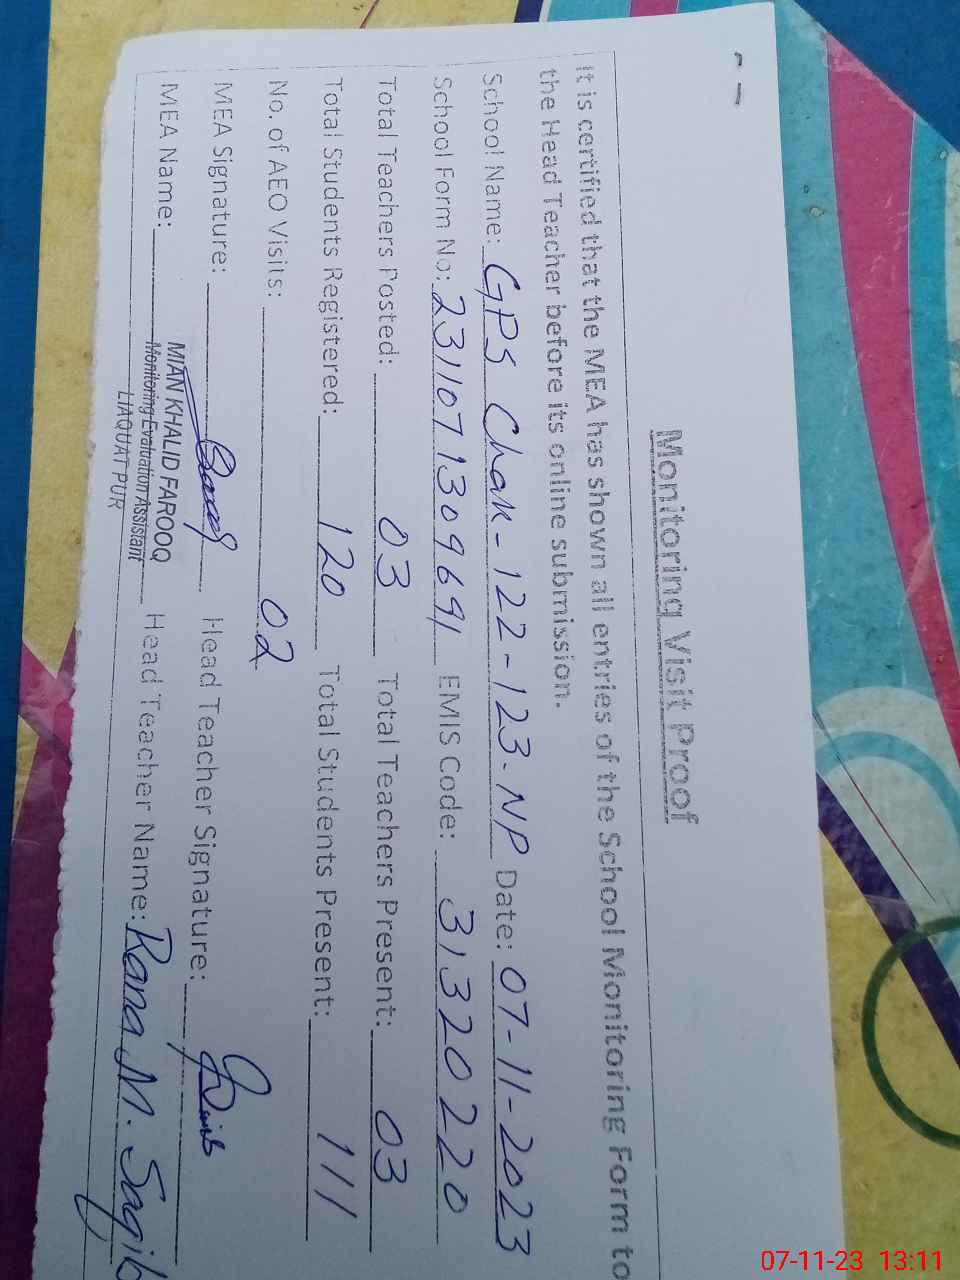 Monitoring Visit Proof
It is certified that the MEA has shown all entries of the School Monitoring Form to
the Head Teacher before its online submission.
School Name: GPS Chak-122-123-NP Date: 07-11-2023
School Form No: 2311071309691 EMIS Code: 31320220
Total Teachers Posted: 03 Total Teachers Present: 03
Total Students Registered: 120 Total Students Present: 111
No. of AEO Visits: 02
MEA Signature: Head Teacher Signature:
MEA Name: MIAN KHALID FAROOQ Head Teacher Name: Rana M. Saqib
Monitoring Evaluation Assistant
LIAQUAT PUR
07-11-23 13:11